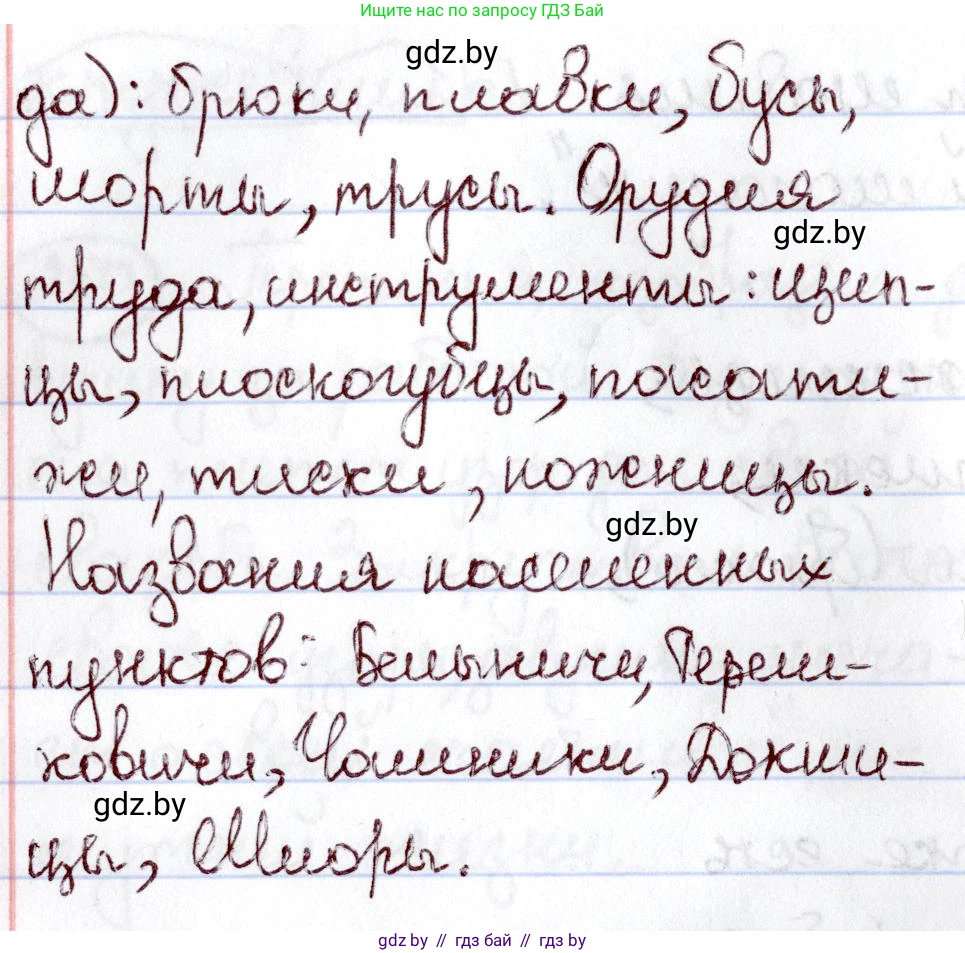 Ищите нас по запросу ГДЗ Бай
gdz.by
да): брюки, плавки, бусы,
шорты, трусы. Орудия
gdz.by
труда, инструменты: щип-
цы, плоскогубцы, пассати-
жи, тиски, ножницы.
gdz.by
Названия населенных
пунктов: Белыничи, Тереш-
ковичи, Чашники, Докши-
gdz.by
цы, Миоры.
gdz by // гдз бай // гдз by